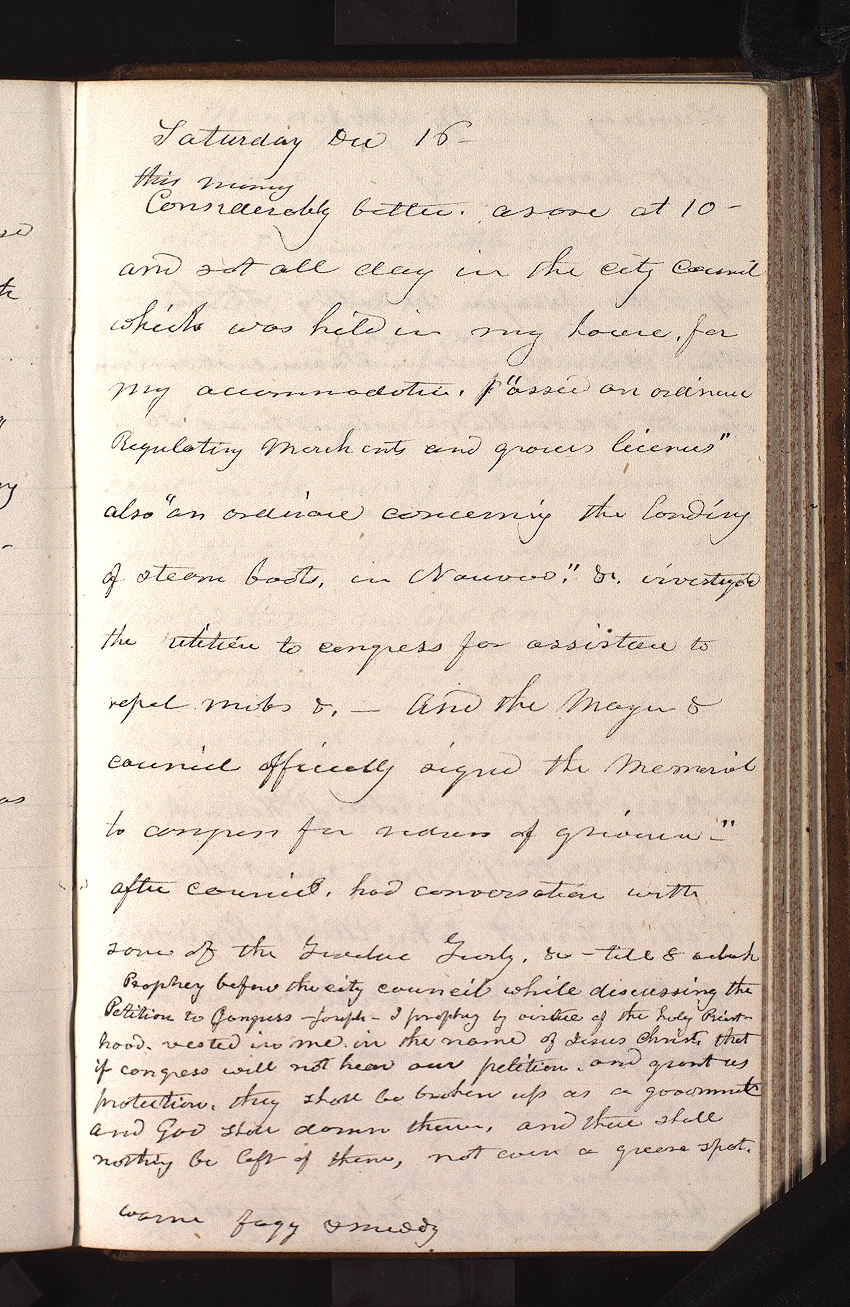 Saturday Dec 16-
this morning
Considerably better. arose at 10-
and sat all day in the city council
which was held in my house, for
my accommodation. Passed "an ordinance
Regulating Merchants and grocers licences"
also "an ordinance concerning the landing
of steam boats, in Nauvoo". &c. investigated
the petition to congress for assistance to
repel mobs &c. — And the Mayor &
council officially signed the Memorial
to congress for redress of grievances—"
after council. had conversation with
some of the Twelve Turly, &c - till 8 oclock
Prophcy before the city council while discussing the
Petition to Congress - Joseph - I prophcy by virtue of the holy Priest-
hood. vested in me. in the name of Jesus Christ, that
if congress will not hear our petition. and grant us
protection. they shall be broken up as a government
and God shall damn them, and there shall
nothing be left of them, not even a grease spot.
warm foggy & muddy